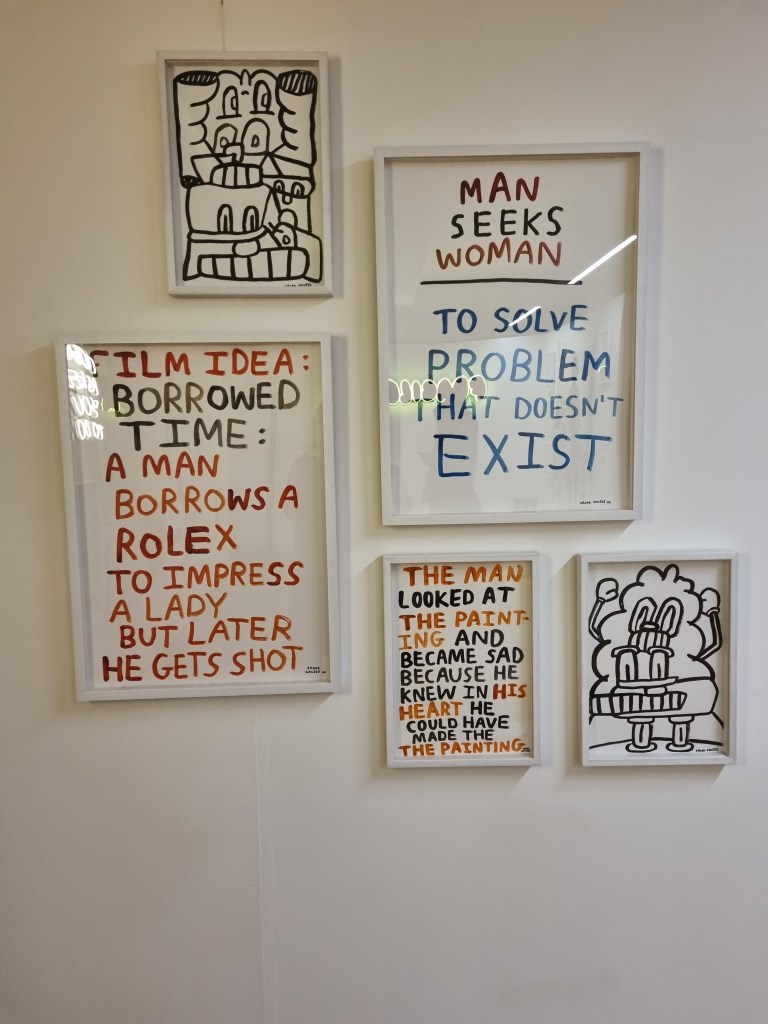 MAN
SEEKS
WOMAN
TO SOLVE
PROBLEM
THAT DOESN'T
EXIST
FILM IDEA:
BORROWED
TIME:
A MAN
BORROWS A
ROLEX
TO IMPRESS
A LADY
BUT LATER
HE GETS SHOT
THE MAN
LOOKED AT
THE PAINT-
ING AND
BECAME SAD
BECAUSE HE
KNEW IN HIS
HEART HE
COULD HAVE
MADE THE
THE PAINTING